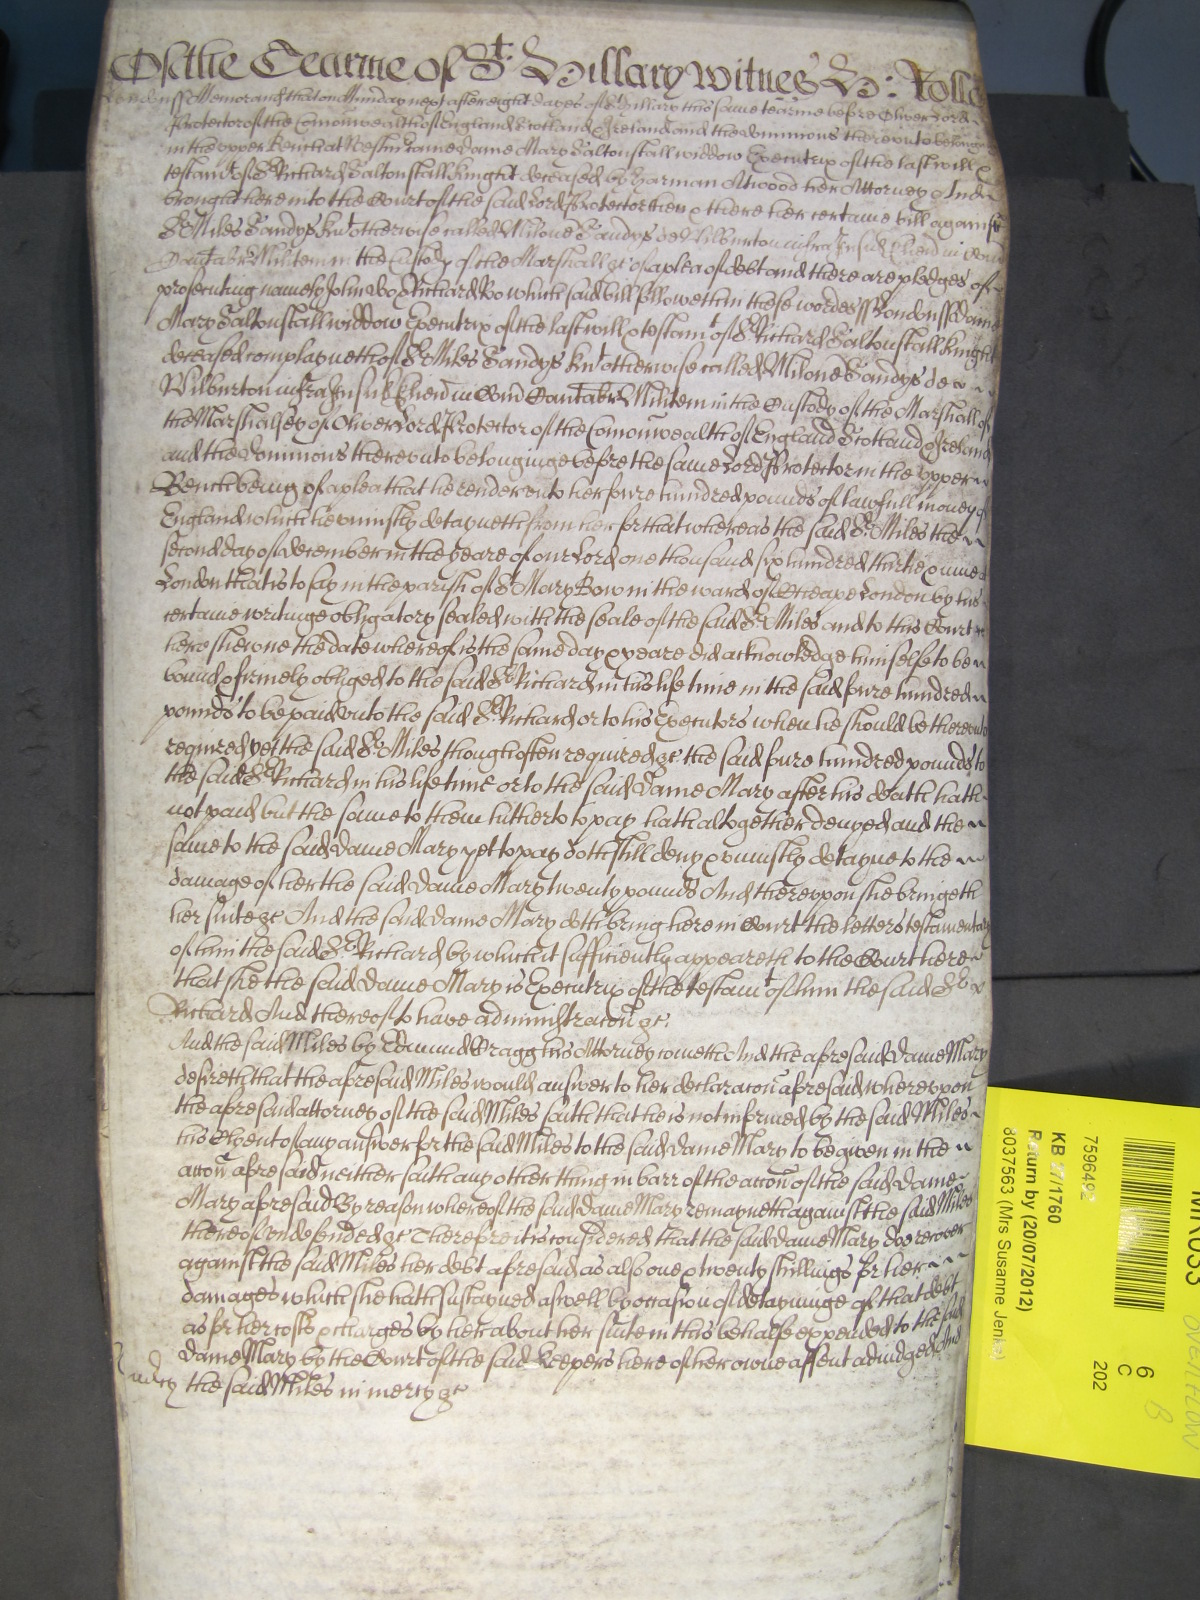 Of the Tearme of St. Hillary Witnes H: Rolle
London ss Memorand that on Munday next after eight dayes of St Hillary this same tearme before Oliver Lord
Protector of the Comonwealth of England Scotland & Ireland and the dominions thereunto belonginge
in the upper Bench at Westm came Dame Mary Saltonstall widdow Executrix of the last will &
testamt of Sr Richard Saltonstall knight deceased by Harman Atwood her Attorney And
brought here into the Court of the said Lord Protector then & there her certaine bill against
Sr Miles Sandys knt otherwise called Milone Sandys de Wilburton infra Insul Eliens in Com
Cantabr Militem in the custody of the Marshall &c of a plea of debt and there are pledges of
prosecuting namely John Doo & Richard Roo which said bill followeth in these wordes ss London ss Dame
Mary Saltonstall widdow Executrix of the last will & testamt of Sr Richard Saltonstall knight
deceased complayneth of Sr Miles Sandys knt otherwise called Milone Sandys de
Wilburton infra Insul Eliens in Com Cantabr Militem in the Custody of the Marshall of
the Marshallsey of Oliver Lord Protector of the Comonwealth of England Scotland & Ireland
and the dominions thereunto belonginge before the same Lord Protector in the upper
Bench being of a plea that he render unto her foure hundred pounds of lawfull money of
England which he uniustly detayneth from her for that whereas the said Sr Miles the
second day of december in the yeare of our Lord one thousand six hundred thirtie & nine at
London that is to say in the parish of St Mary Bow in the ward of Cheape London by his
certaine writinge obligatory sealed with the seale of the said Sr Miles and to this Court
here shewne the date whereof is the same day & yeare did acknowledge himselfe to be
bound & firmely obliged to the said Sr Richard in his life time in the said foure hundred
pounds to be paid unto the said Sr Richard or to his Executors when he should be thereunto
required yet the said Sr Miles though often required &c the said foure hundred pounds to
the said Sr Richard in his life time or to the said Dame Mary after his death hath
not paid but the same to them hitherto to pay hath altogether denyed and the
same to the said Dame Mary yet to pay doth still deny & uniustly detayne to the
damage of her the said Dame Mary twenty pounds And thereupon she bringeth
her suite &c And the said Dame Mary doth bring here in Court the letters testamentary
of him the said Sr Richard by which it sufficiently appeareth to the Court here
that she the said Dame Mary is Executrix of the testamt of him the said Sr
Richard And thereof to have administracon &c.
And the said Miles by Edmund Wragg his Attorney cometh And the aforesaid Dame Mary
desireth that the aforesaid Miles would answer to her declaracon aforesaid whereupon
the aforesaid attorney of the said Miles saith that he is not informed by the said Miles
his Clyent of any answer for the said Miles to the said Dame Mary to be given in the
accon aforesaid neither saith any other thing in barr of the accon of the said Dame
Mary aforesaid By reason whereof the said Dame Mary remayneth against the said Miles
thereof undefended &c Therefore it is considered that the said Dame Mary doe recover
against the said Miles her debt aforesaid as also one & twenty shillings for her
damages which she hath sustayned aswell by occasion of detayninge of that debt
as for her costs & charges by her about her suite in this behalfe expended to the said
Dame Mary by the Court of the said Keepers here of her owne assent adiudged And
mercy the said Miles in mercy &c
7596492
KB 27/1760
Return by (20/07/2012)
8037563 (Mrs Susanne Jenks)
6
C
202